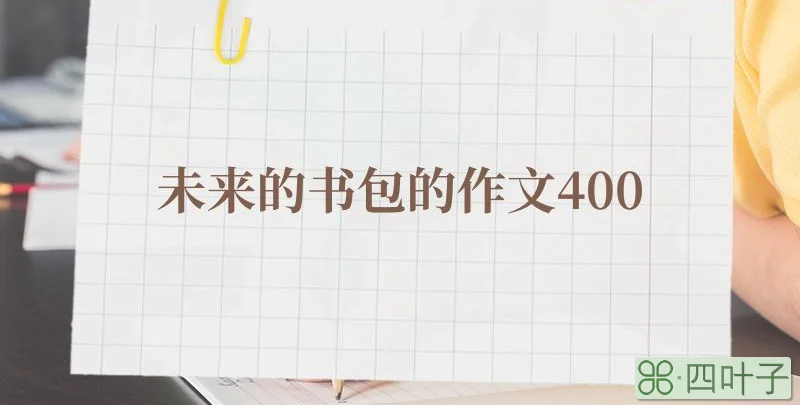 未来的书包的作文400
四叶子